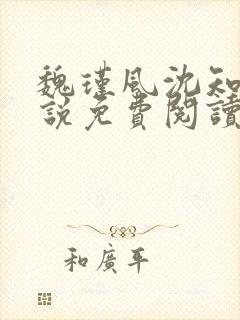 魏瑾風沈知
說免費閱讀
和廣平